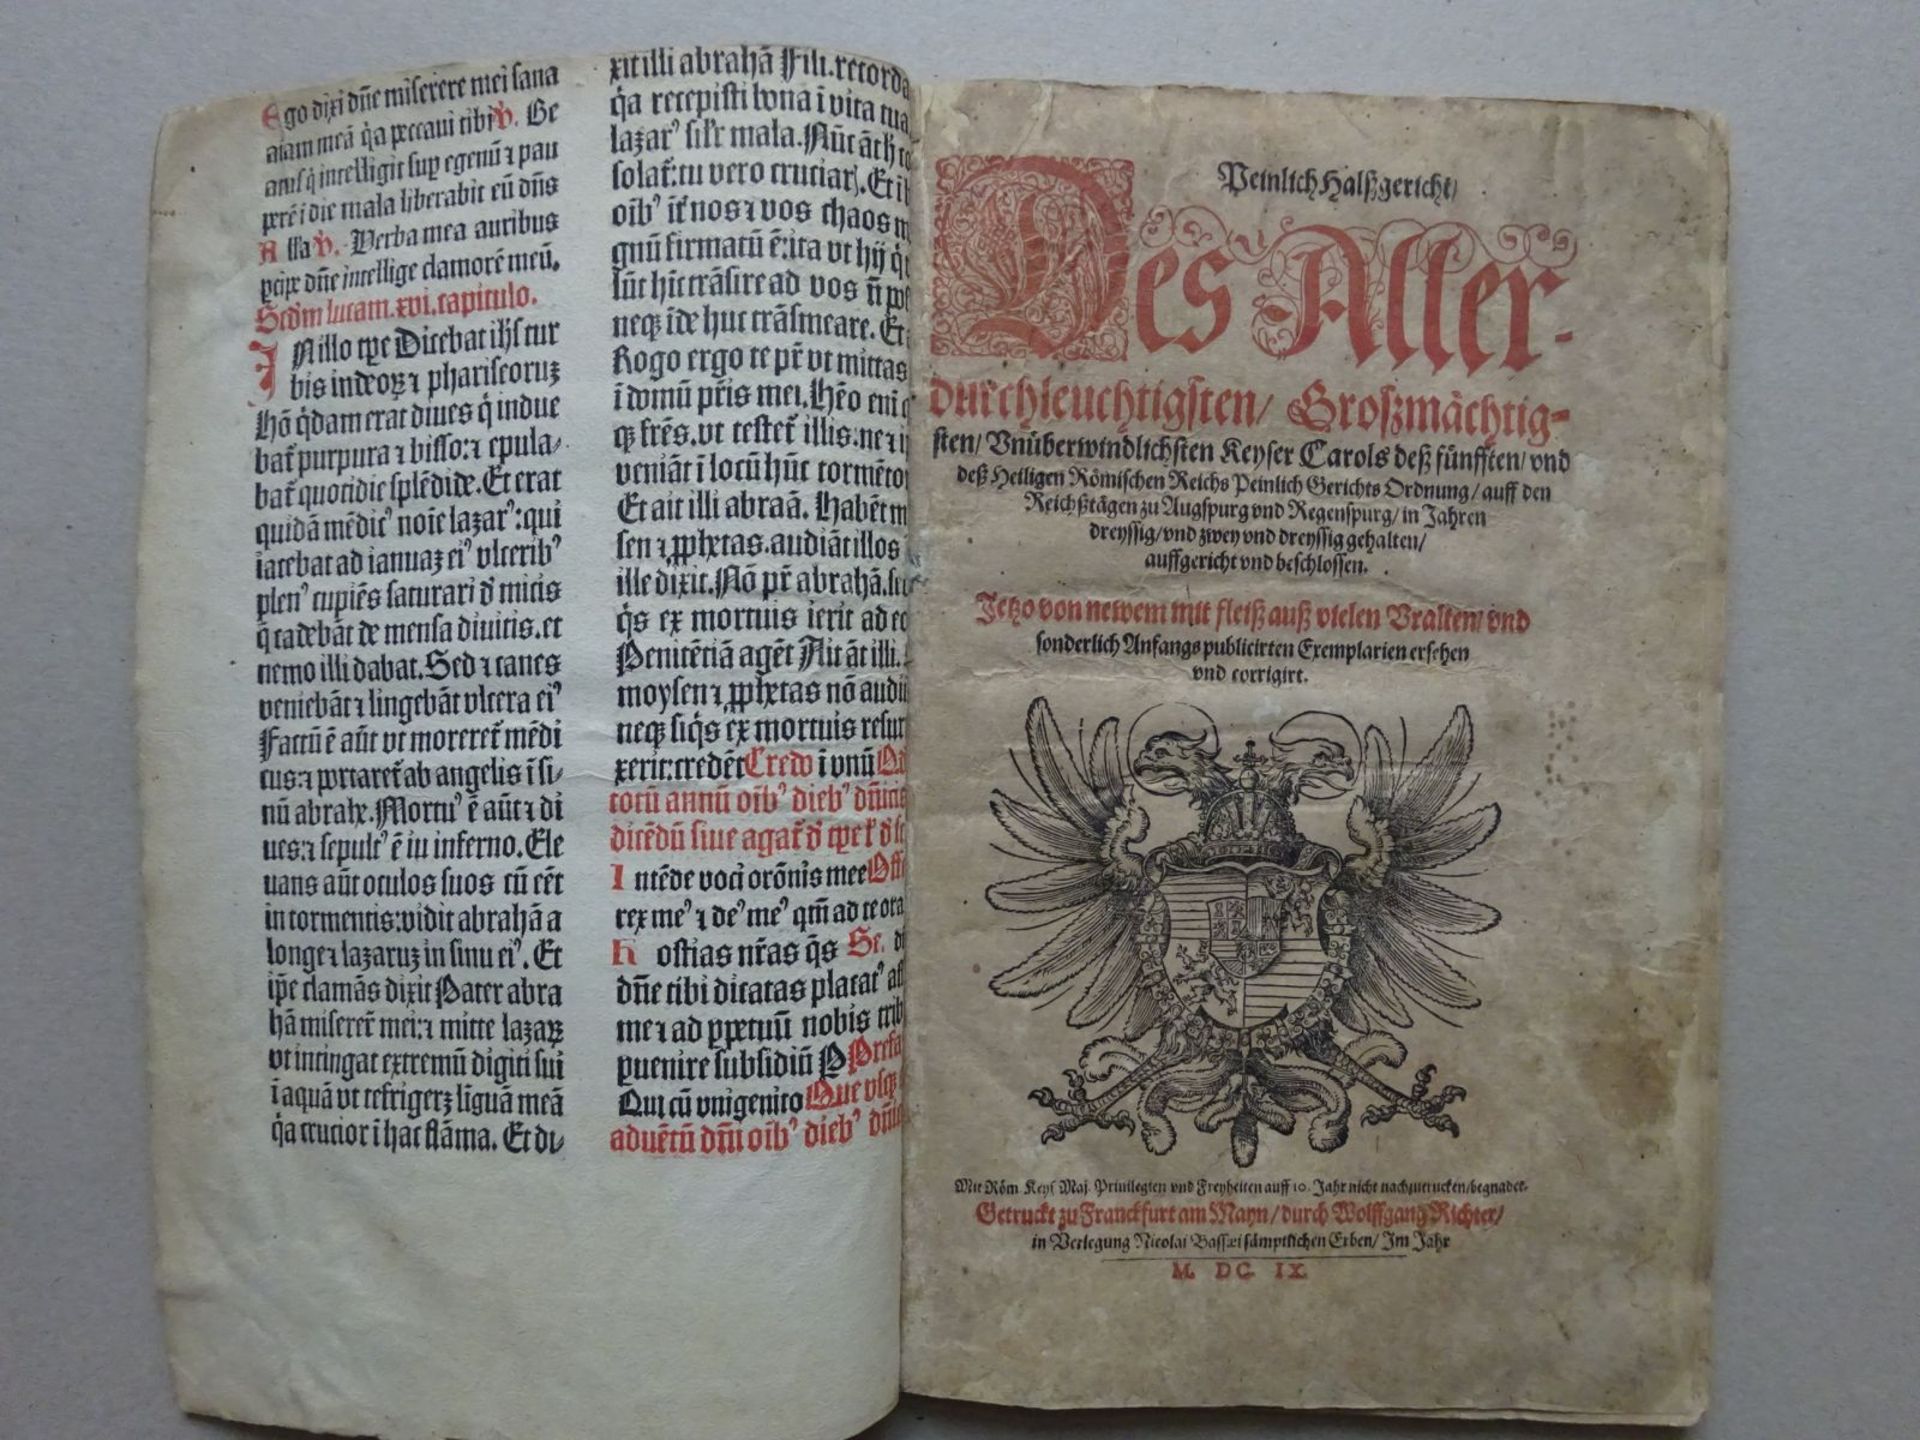 Ego dixi dñe miserere mei sana
aiam meã q̃a peccaui tibi V. Be
atus q̃ intelligit sup egenũ ⁊ pau
perẽ i die mala liberabit eũ dñs
Alla V. Verba mea auribus
ꝑcipe dñe intellige clamorẽ meũ.
Scdm lucam. xvi. capitulo.
IN illo tꝑe Dicebat ihs tur
bis iudeoꝝ ⁊ phariseoruʒ
Hõ q̃dam erat diues q̃ indue
bat̃ purpura ⁊ bisso: ⁊ epula-
bat̃ quotidie splẽdide. Et erat
quidã mẽdicꝰ noĩe lazarꝰ: qui
iacebat ad ianuaʒ eiꝰ vlceribꝰ
plenꝰ cupiẽs saturari d̃ micis
q̃ cadebãt de mensa diuitis. et
nemo illi dabat. Sed ⁊ canes
veniebãt ⁊ lingebãt vlcera eiꝰ
Factũ ẽ aũt vt moreret̃ mẽdi
cus: ⁊ portaret̃ ab angelis ĩ si-
nũ abrahe. Mortuꝰ ẽ aũt ⁊ di
ues: ⁊ sepultꝰ ẽ iu inferno. Ele
uans aũt oculos suos cũ eẽt
in tormentis: vidit abrahã a
longe ⁊ lazaruʒ in sinu eiꝰ. Et
ip̃e clamãs dixit Pater abra
hã miserer̃ mei: ⁊ mitte lazaꝝ
vt intingat extremũ digiti sui
ĩ aquã vt refrigerʒ liguã meã
q̃a crucior ĩ hac flãma. Et di-
xit illi abrahã Fili. recorda
q̃a recepisti bona ĩ vita tua
lazarꝰ silr̃ mala. Nũc ãt h̃ co
solat̃: tu vero cruciar̃. Et i
oĩbꝰ it̃ nos ⁊ vos chaos m
gnũ firmatũ ẽ: ita vt hij q̃
sũt hĩc trãsire ad vos ñ
neqꝫ ĩde huc trãsmeare. Et
Rogo ergo te pr̃ vt mittas
ĩ domũ pr̃is mei. Hẽo eni
qꝫ fr̃es. vt testet̃ illis: ne ⁊ i
veniãt ĩ locũ hũc tormẽto
Et ait illi abraã. Habẽt m
sen ⁊ ꝓphetas. audiãt illos
ille dixit. Nõ pr̃ abrahã. s
q̃s ex mortuis ierit ad eo
Penitẽtiã agẽt Ait ãt illi.
moysen ⁊ ꝓphetas nõ audi
neqꝫ si q̃s ex mortuis resur
xerit: credẽt Credo ĩ vnũ
totũ annũ oĩbꝰ diebꝰ dñicis
dicẽdũ siue agat̃ d̃ tꝑe
Intẽde voci orõnis mee Off
rex meꝰ ⁊ deꝰ meꝰ qm̃ ad te ora
Hostias nr̃as q̃s Se.
dñe tibi dicatas placatꝰ
me ⁊ ad ꝑpetuũ nobis trib
ꝓuenire subsidiũ P Prefa
Qui cũ vnigenito Que vsqꝫ
aduẽtũ dñi oĩbꝰ diebꝰ dñi
Peinlich Halßgericht/
Des Aller-
durchleuchtigsten/ Großmächtig-
sten/ Vnüberwindlichsten Keyser Carols deß fünfften/ vnd
deß Heiligen Römischen Reichs Peinlich Gerichts Ordnung/ auff den
Reichßtägen zu Augspurg vnd Regenspurg/ in Jahren
dreyssig/ vnd zwey vnd dreyssig gehalten/
auffgericht vnd beschlossen.
Jetzo von newem mit fleiß auß vielen Vralten/ vnd
sonderlich Anfangs publicirten Exemplarien ersehen
vnd corrigirt.
Mit Röm. Keys. Maj. Priuilegien vnd Freyheiten auff 10. Jahr nicht nachzutrucken/ begnadet.
Getruckt zu Franckfurt am Mayn/ durch Wolffgang Richter/
in Verlegung Nicolai Bassæi sämptlichen Erben/ Im Jahr
M. DC. IX.